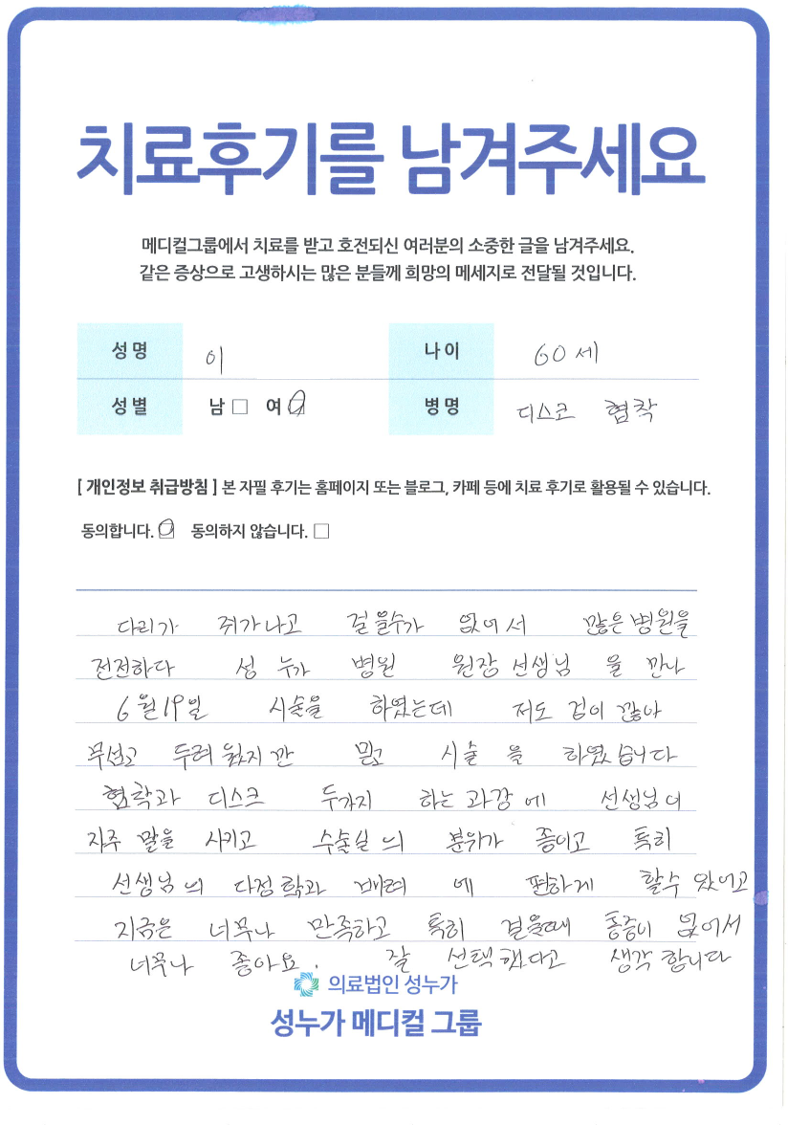 치료후기를 남겨주세요
메디컬그룹에서 치료를 받고 호전되신 여러분의 소중한 글을 남겨주세요.
같은 증상으로 고생하시는 많은 분들께 희망의 메세지로 전달될 것입니다.
성명 이 나이 60세
성별 남□ 여☑ 병명 디스크 협착
[ 개인정보 취급방침 ] 본 자필 후기는 홈페이지 또는 블로그, 카페 등에 치료 후기로 활용될 수 있습니다.
동의합니다.☑ 동의하지 않습니다.□
다리가 쥐가나고 걸을수가 없어서 많은병원을
전전하다 성 누가 병원 원장 선생님 을 만나
6월19일 시술을 하였는데 저도 겁이 많아
무섭고 두려웠지만 믿고 시술 을 하였습니다
협착과 디스크 두가지 하는과강에 선생님이
자주 말을 시키고 수술실의 분위가 좋이고 특히
선생님의 다정함과 배려 에 편하게 할수 있어고
지금은 너무나 만족하고 특히 걸을때 통증이 없어서
너무나 좋아요. 잘 선택했다고 생각합니다
의료법인 성누가
성누가 메디컬 그룹